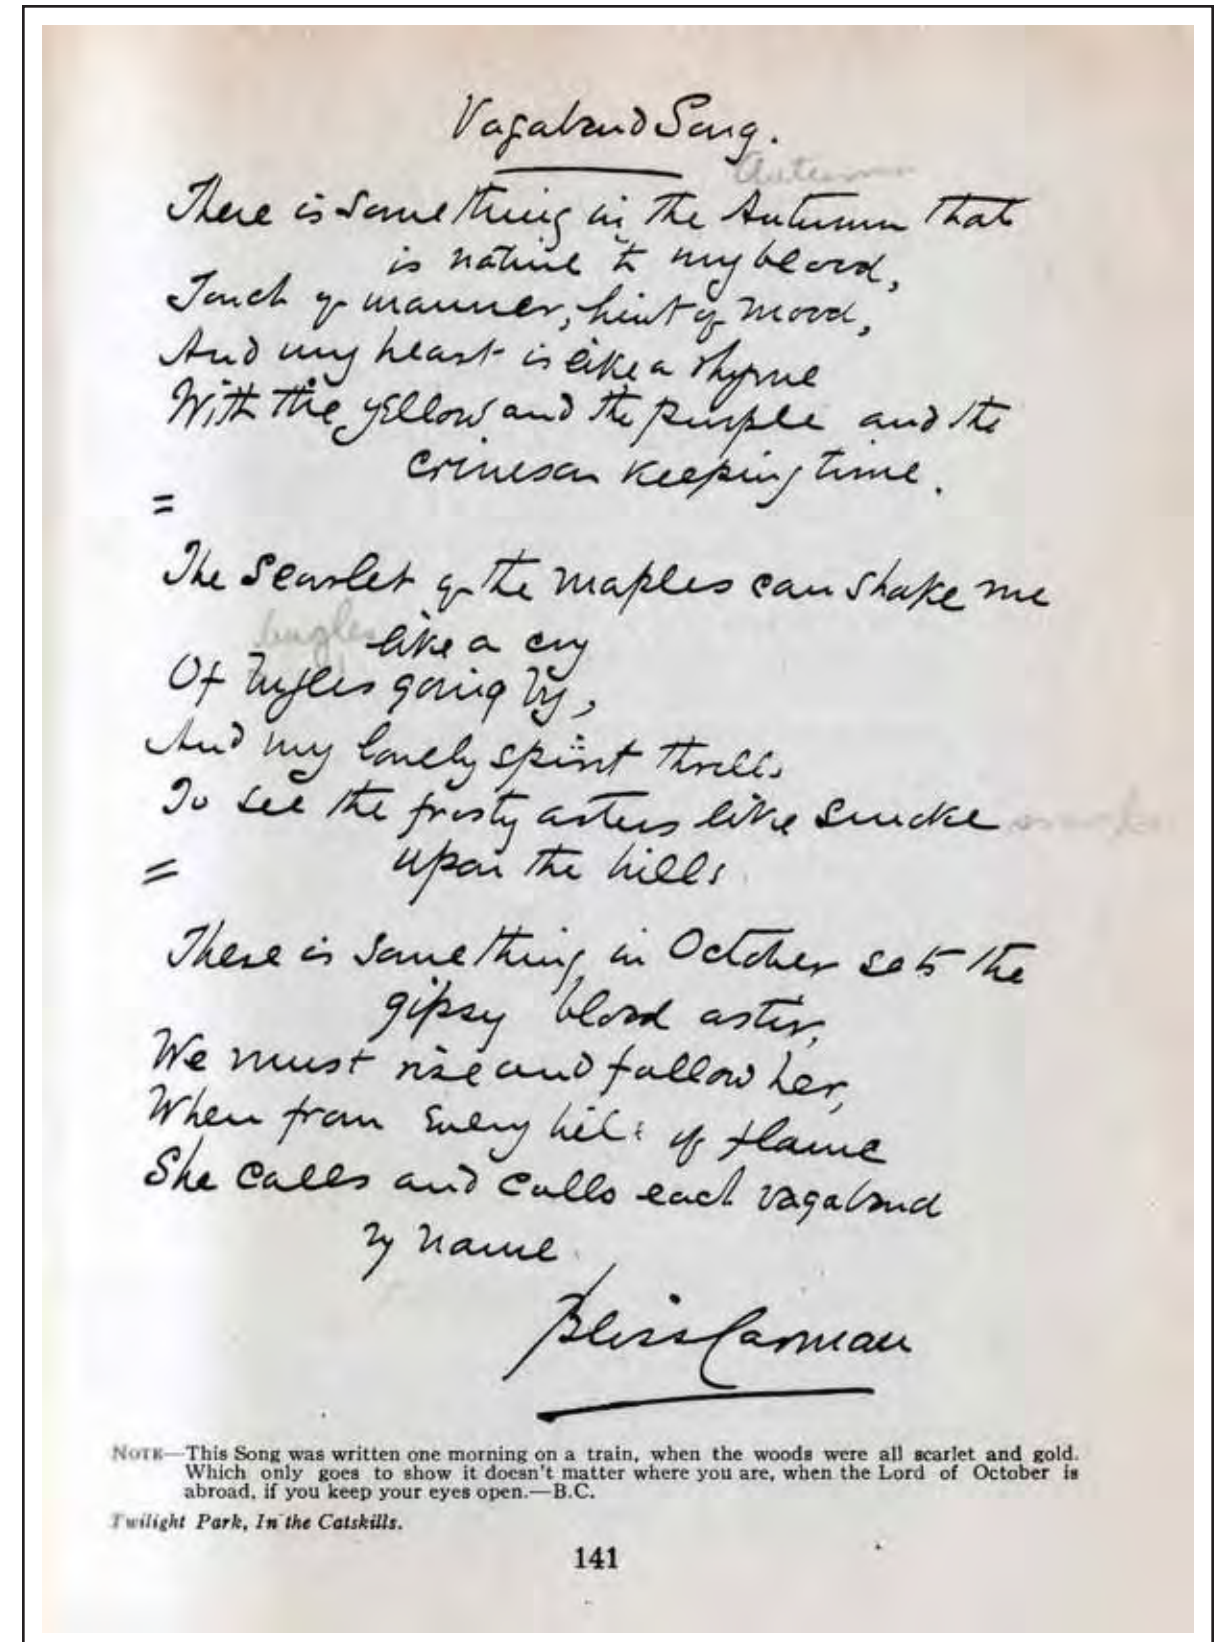 Vagabond Song.
Autumn
There is something in the Autumn that
is native to my blood,
Touch of manner, hint of mood,
And my heart is like a rhyme
With the yellow and the purple and the
crimson keeping time.
=
The Scarlet of the maples can shake me
bugles
like a cry
Of bugles going by,
And my lonely spirit thrills
To see the frosty asters like smoke
upon the hills.
=
There is something in October sets the
gipsy blood astir,
We must rise and follow her,
When from every hill of flame
She calls and calls each vagabond
by name.
Bliss Carman
NOTE—This Song was written one morning on a train, when the woods were all scarlet and gold.
Which only goes to show it doesn't matter where you are, when the Lord of October is
abroad, if you keep your eyes open.—B.C.
Twilight Park, In the Catskills.
141